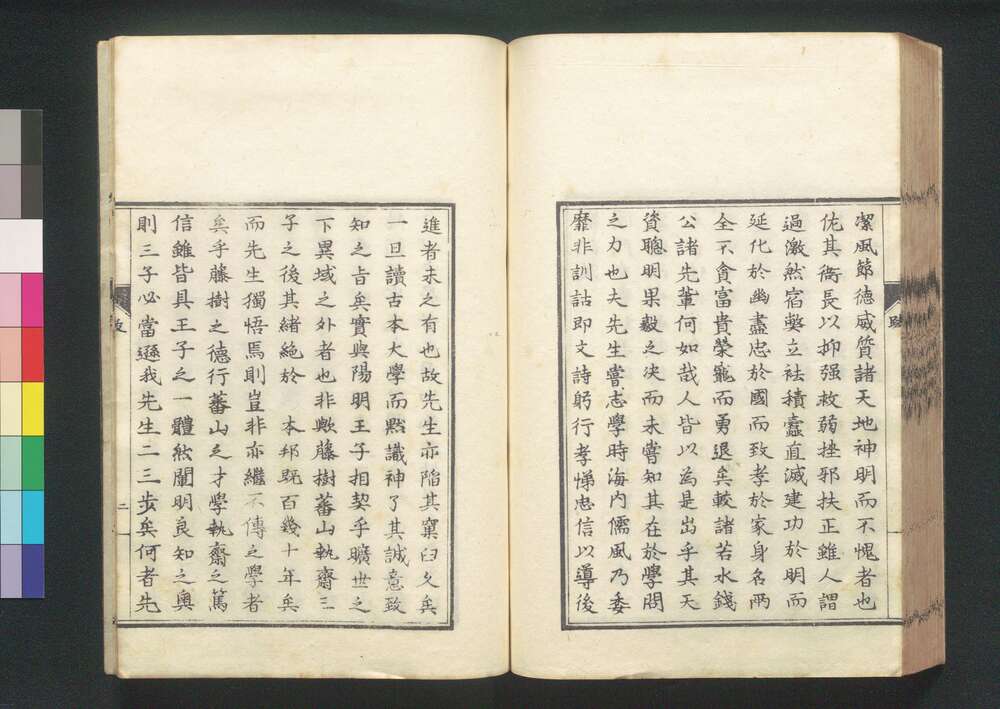 潔風節德威質諸天地神明而不愧者也
佐其衙長以抑强救弱挫邪扶正雖人謂
過激然宿弊立袪積蠧直滅建功於明而
延化於幽盡忠於國而致孝於家身名兩
全不貪富貴榮寵而勇退矣較諸若水錢
公諸先輩何如哉人皆以為是出乎其天
資聰明果毅之决而未嘗知其在於學問
之力也夫先生嘗志學時海内儒風乃委
靡非訓詁即文詩躬行孝悌忠信以導後
進者未之有也故先生亦陷其窠臼久矣
一旦讀古本大學而默識神了其誠意致
知之旨矣實與陽明王子相契乎曠世之
下異域之外者也非歟藤樹蕃山執齋三
子之後其緒絶於　本邦既百幾十年矣
而先生獨悟焉則豈非亦繼不傳之學者
矣乎藤樹之德行蕃山之才學執齋之篤
信雖皆具王子之一體然闡明良知之奥
則三子必當遜我先生二三步矣何者先
二